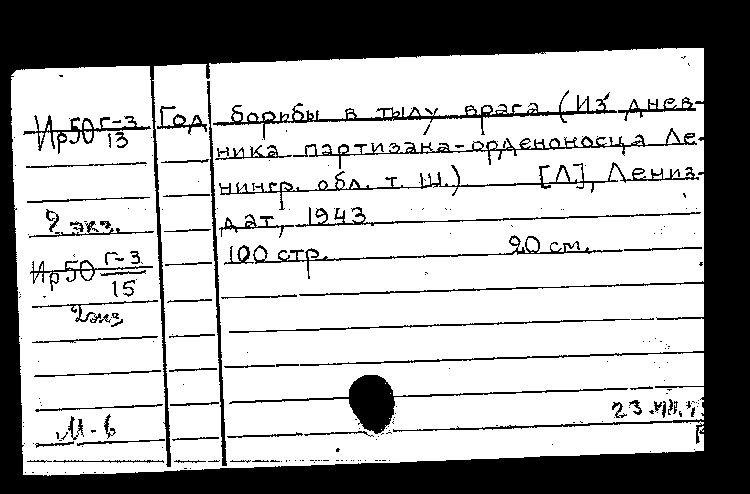 Ир50 Г-3/13
2 экз.
Ир50 Г-3/15
2 экз
М-6
Год борьбы в тылу врага (Из днев-
ника партизана-орденоносца Ле-
нингр. обл. т. Ш.) [Л], Лениз-
дат, 1943.
100 стр. 20 см.
23